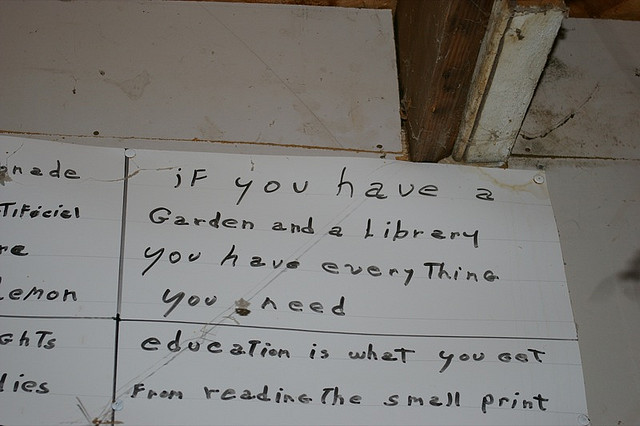 nade
TiFicial
re
Lemon
ghTs
lies
iF you have a
Garden and a Library
you have everyThing
you need
educaTion is whaT you geT
From reading The small print